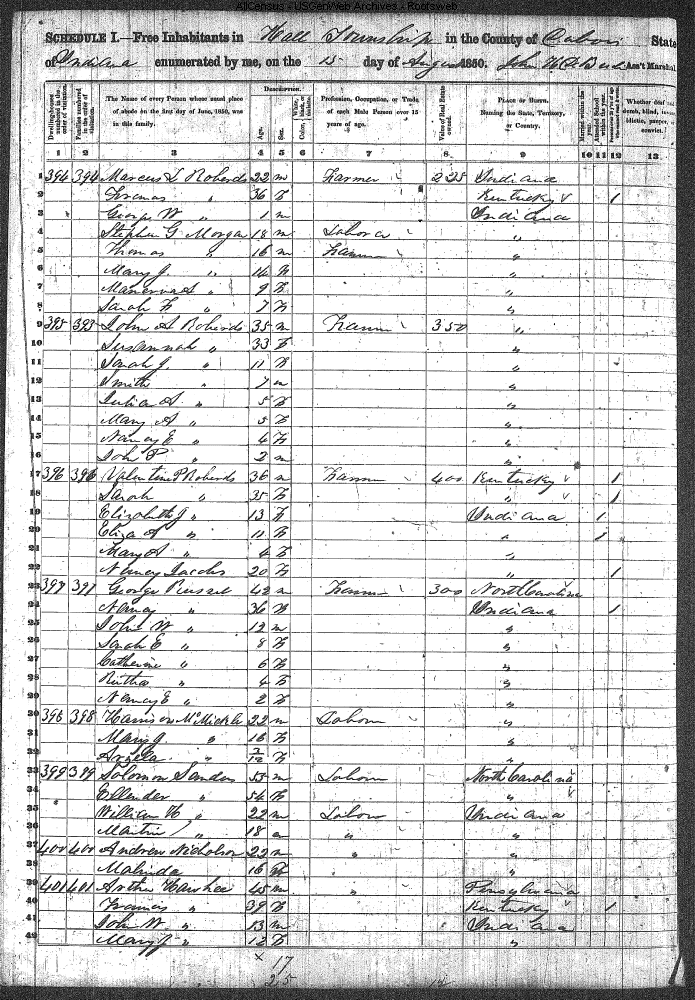 AllCensus - USGenWeb Archives - Rootsweb
SCHEDULE I.—Free Inhabitants in Hall Township in the County of State
of Indiana enumerated by me, on the 15 day of August 1850. Ass't Marshal
Dwelling-houses numbered in the order of visitation.
Families numbered in the order of visitation.
The Name of every Person whose usual place of abode on the first day of June, 1850, was in this family.
DESCRIPTION.
Age.
Sex.
White, black, or mulatto.
Color,
Profession, Occupation, or Trade of each Male Person over 15 years of age.
Value of Real Estate owned.
PLACE OF BIRTH. Naming the State, Territory, or Country.
Married within the year.
Attended School within the year.
Whether deaf and dumb, blind, pauper, or convict.
1 2 3 4 5 6 7 8 9 10 11 12 13
1 394 394 Marcus L Roberds 22 m Farmer 225 Indiana
2 Frances " 36 F Kentucky 1
3 George W " 1 m Indiana
4 Stephen G Morgan 18 m Laborer "
5 Thomas " 16 m Farmer "
6 Mary J. " 14 F "
7 " 9 F "
8 Sarah F " 7 F "
9 395 395 John A Roberds 35 m Farmer 350 "
10 Susannah " 33 F "
11 Sarah J. " 11 F "
12 Smith " 7 m "
13 Julia A. " 5 F "
14 Mary A " 5 F "
15 Nancy E " 4 F "
16 John P " 2 m "
17 396 396 Valentine P Roberds 36 m Farmer 400 Kentucky 1
18 Sarah " 35 F " 1
19 Elizabeth J " 13 F Indiana 1
20 Eliza A " 11 F " 1
21 Mary A " 4 F "
22 Nancy Jacobs 20 F " 1
23 397 397 George Russel 42 m Farmer 300 North Carolina
24 Nancy " 36 F Indiana 1
25 John W " 12 m "
26 Sarah E " 8 F "
27 Catherine " 6 F "
28 " 4 F "
29 Nancy E " 2 F "
30 398 398 Harrison McMickle 22 m Labour "
31 Mary J. " 16 F "
32 3/12 F "
33 399 399 Solomon Sanders 55 m Labour North Carolina
34 Ellender " 54 F "
35 William H " 22 m Labour Indiana
36 Martin " 18 m " "
37 400 400 Andrew Nicholson 22 m " "
38 Malinda " 16 F "
39 401 401 45 m " Pensylvania
40 Frances " 39 F Kentucky 1
41 John W " 13 m Indiana
42 Mary J " 12 F "
17
25